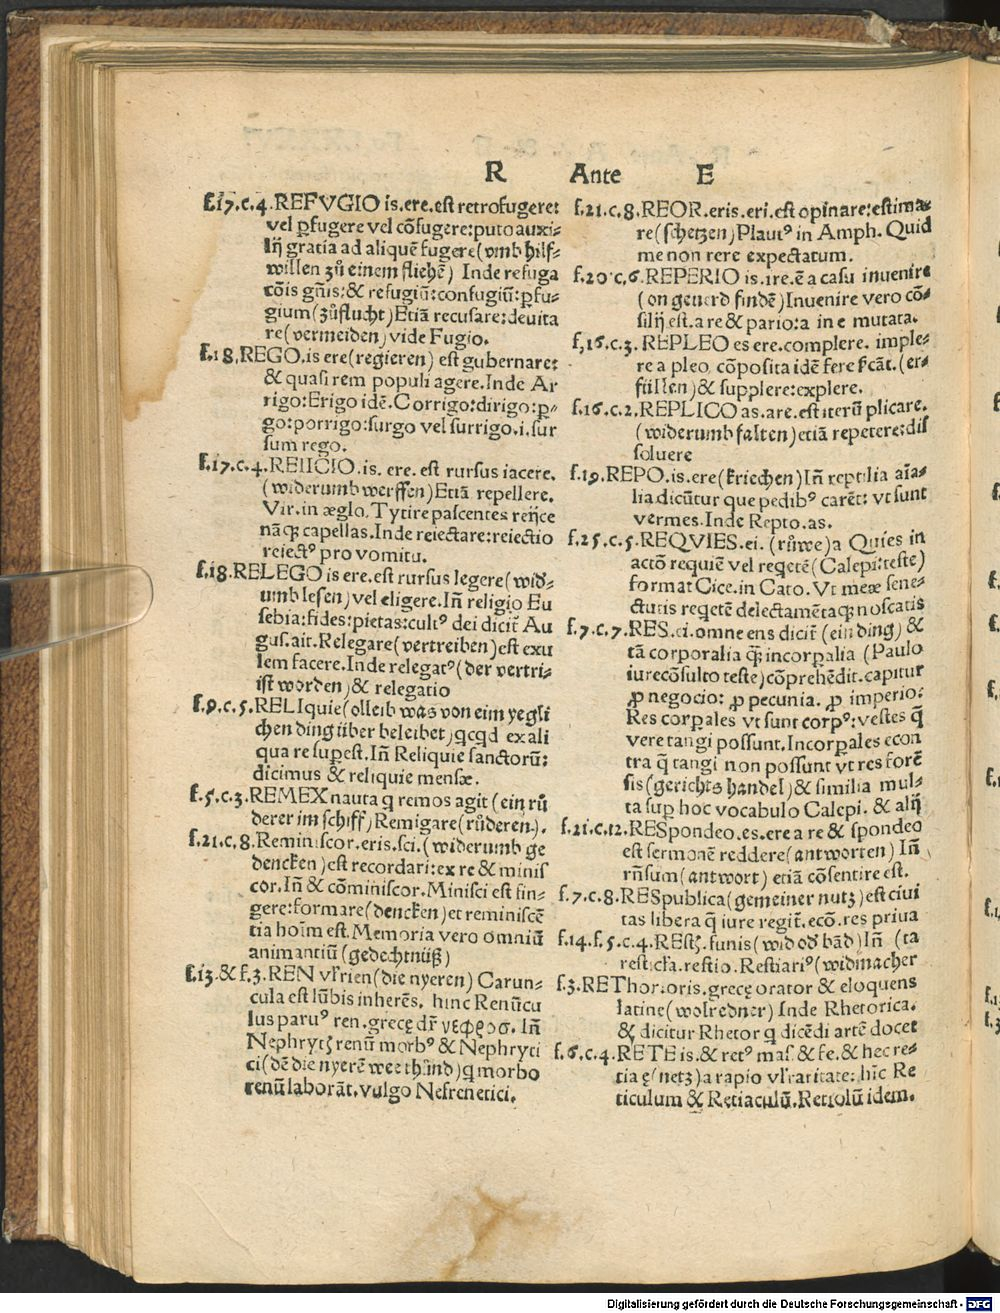 R Ante E
f.17.c.4.REFVGIO is.ere.est retrofugere:
vel ꝑfugere vel cõfugere:puto auxi-
lij gratia ad aliquẽ fugere(vmb hilf-
willen zů einem fliehẽ) Inde refuga
cõis gñis:& refugiũ:confugiũ:ꝑfu-
gium(zůflucht)Etiã recusare:deuita
re(vermeiden)vide Fugio.
f.18.REGO.is ere(regieren) est gubernare:
& quasi rem populi agere.Inde Ar
rigo:Erigo idẽ.Corrigo:dirigo:ꝑ-
go:porrigo:surgo vel surrigo.i.sur
sum rego.
f.17.c.4.REIICIO.is. ere. est rursus iacere.
(widerumb werffen)Etiã repellere.
Vir.in æglo.Tytire pascentes reijce
nãqꝫ capellas.Inde reiectare:reiectio
reiectꝰ pro vomitu.
f.18.RELEGO is ere.est rursus legere(wid-
umb lesen)vel eligere.Iñ religio Eu
sebia:fides:pietas:cultꝰ dei dicit̃ Au
gus.ait.Relegare(vertreiben)est exu
lem facere.Inde relegatꝰ(der vertri-
ist worden)& relegatio
f.9.c.5.RELIquie(olleib was von eim yegli
chen ding über beleibet)qcqd ex ali
qua re supest.Iñ Reliquie sanctorũ:
dicimus & reliquie mensæ.
f.5.c.3.REMEX nauta q remos agit(ein rů
derer im schiff)Remigare(růderen).
f.21.c.8.Reminiscor.eris.sci.(widerumb ge
dencken)est recordari:ex re & minis
cor.Iñ & cõminiscor.Minisci est fin-
gere:formare(dencken)et reminiscẽ
tia hoĩm est.Memoria vero omniũ
animantiũ(gedechtnüß)
f.13.& f.3.REN vl' rien(die nyeren) Carun-
cula est lũbis inherẽs. hinc Renũcu
lus paruꝰ ren.gręcę dr̃ νεφρος. Iñ
Nephrytꝫ renũ morbꝰ & Nephryti
ci(dẽ die nyerẽ wee thůnd)q morbo
renũ laborãt.vulgo Nefrenetici.
f.21.c.8.REOR.eris.eri.est opinare:estima-
re(schetzen)Plautꝰ in Amph. Quid
me non rere expectatum.
f.20.c.6.REPERIO is.ire.ẽ a casu inuenire
(on geuerd findẽ)Inuenire vero cõ-
silij est.a re & pario:a in e mutata.
f.16.c.3. REPLEO es ere.complere. imple-
re a pleo cõposita idẽ fere ſ'cãt.(er-
füllen)& supplere:explere.
f.16.c.2.REPLICO as.are.est iterũ plicare.
(widerumb falten)etiã repetere:dis
soluere
f.19.REPO.is.ere(kriechen)Iñ reptilia aĩa-
lia dicũtur que pedibꝰ carẽt: vt sunt
vermes.Inde Repto.as.
f.25.c.5.REQVIES.ei. (růwe)a Quies in
actõ requiẽ vel reqetẽ(Calepi:teste)
format Cice.in Cato. Vt meæ sene-
ctutis reqetẽ delectamẽtaqꝫ noscatis
f.7.c.7.RES.ei.omne ens dicit̃ (ein ding) &
tã corporalia qꝫ̃ incorꝑalia (Paulo
iurecõsulto teste)cõprehẽdit.capitur
ꝓ negocio: ꝓ pecunia. ꝓ imperio:
Res corꝑales vt sunt corpꝰ:vestes q̃
vere tangi possunt.Incorꝑales econ
tra q̃ tangi non possunt vt res forẽ
sis(gerichts handel)& similia mul-
ta sup hoc vocabulo Calepi. & alij
f.21.c.12.RESpondeo.es.ere a re & spondeo
est sermonẽ reddere(antworten) Iñ
rñsum(antwort) etiã cõsentire est.
f.7.c.8.RESpublica(gemeiner nutz)est ciui
tas libera q̃ iure regit̃.ecõ.res priua
f.14.f.5.c.4.RESꝫ.funis(wid oď bãd)Iñ (ta
resticĺa.restio.Restiariꝰ(widmacher
f.3.REThor.oris.gręcę orator & eloquens
latine(wolredner) Inde Rhetorica.
& dicitur Rhetor q dicẽdi artẽ docet
f.6.c.4.RETE is.& retꝰ mas. & fe.& hec re-
tia ę(netz)a rapio vl' raritate: hĩc Re
ticulum & Retiaculũ.Retiolũ idem.
Digitalisierung gefördert durch die Deutsche Forschungsgemeinschaft - DFG